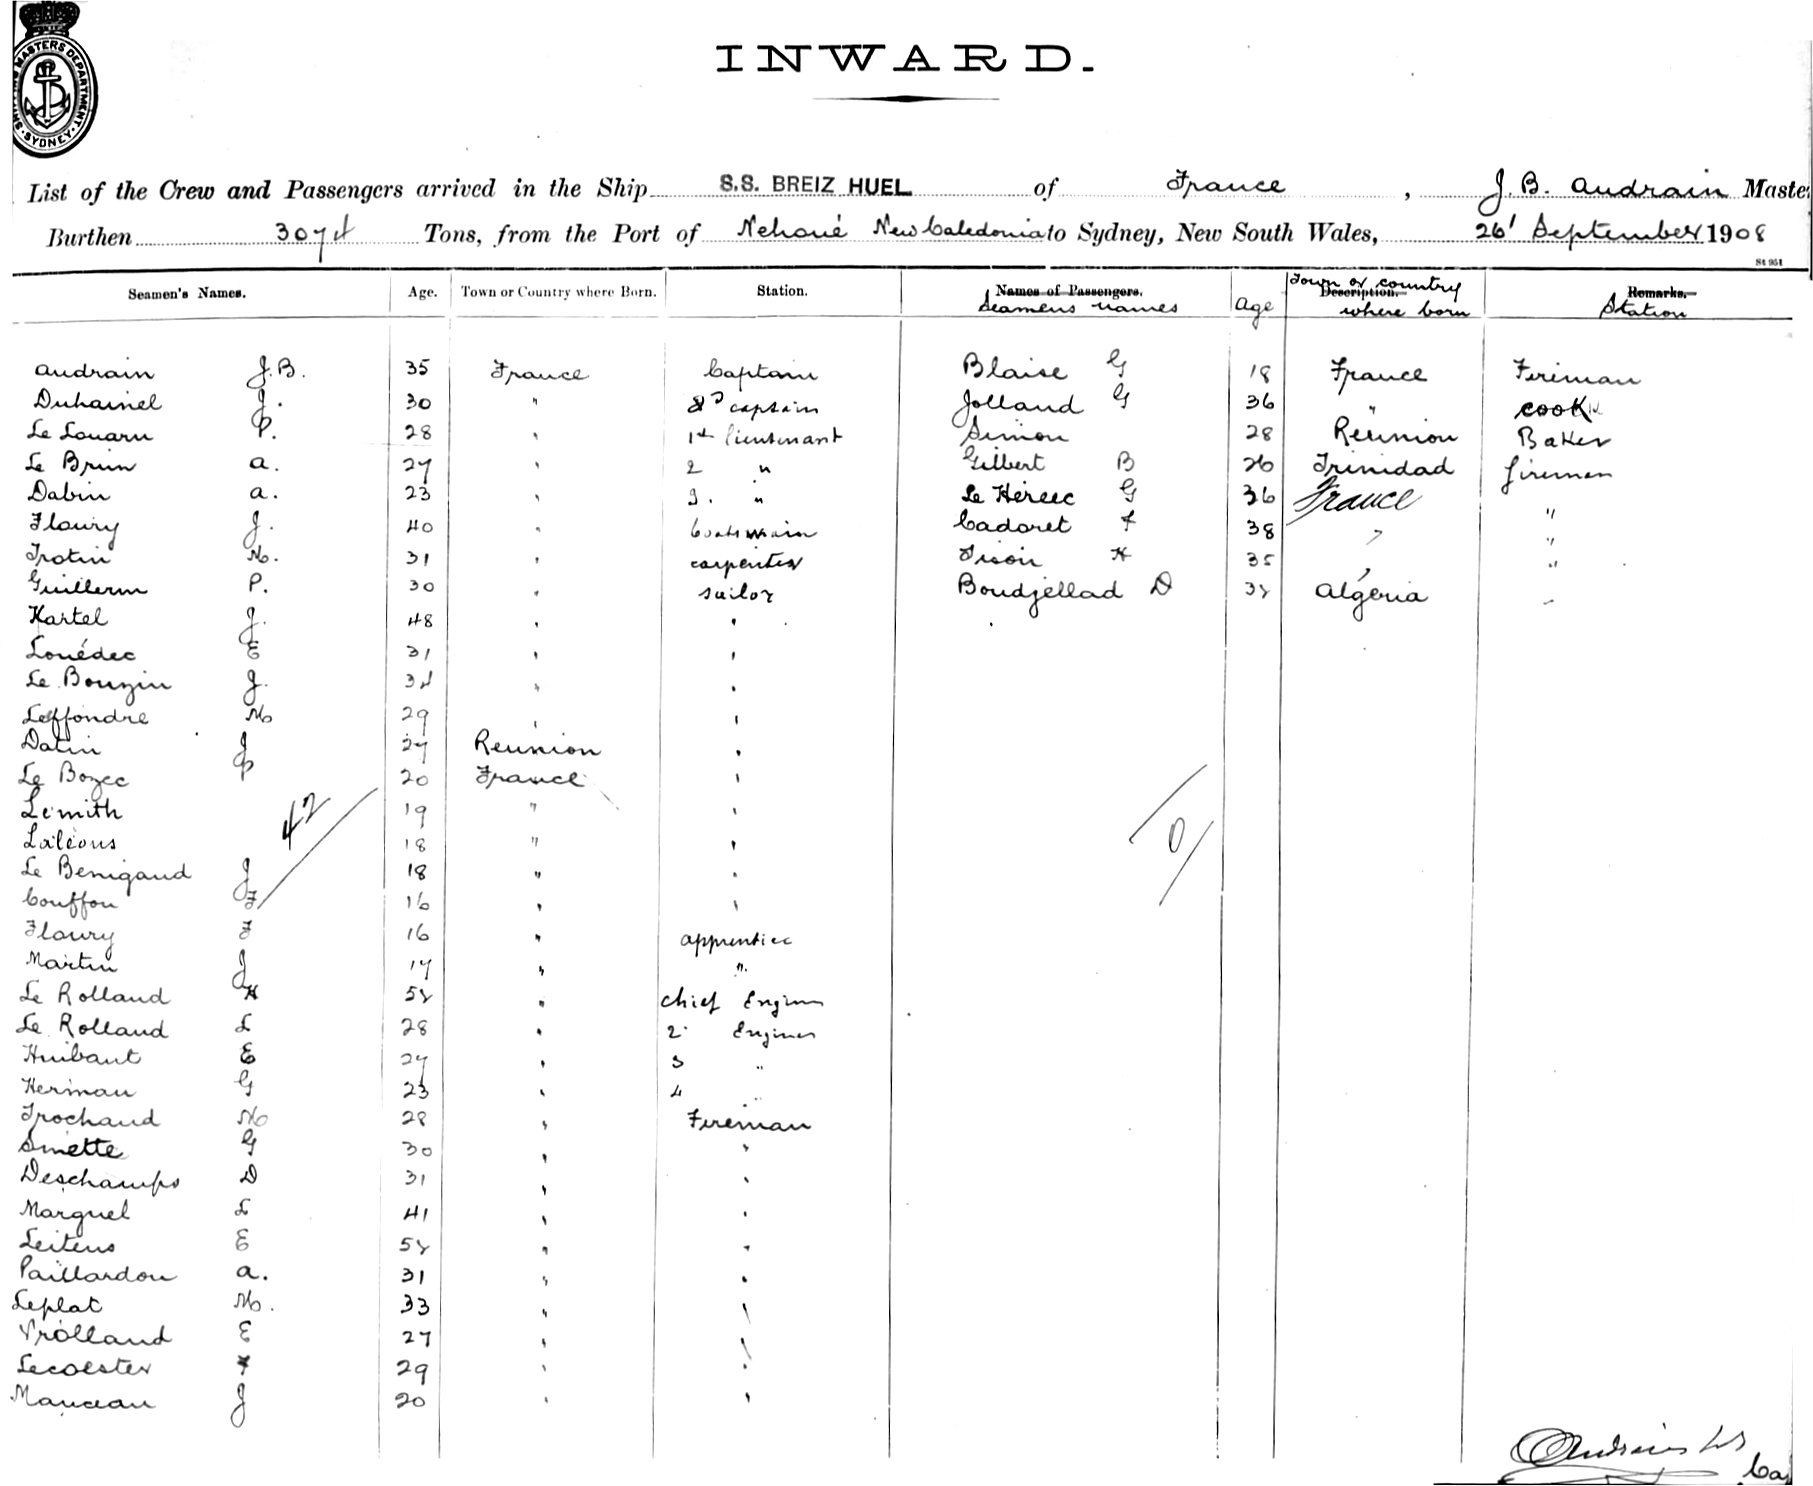 SHIPPING MASTERS DEPARTMENT. SYDNEY.
INWARD.
List of the Crew and Passengers arrived in the Ship S.S. BREIZ HUEL of France, J. B. Audrain Master
Burthen 3074 Tons, from the Port of Nehoué New Caledonia to Sydney, New South Wales, 26' September 1908
St 951
Seamen's Names. Age. Town or Country where Born. Station. Names of Passengers. Seamens names Age Description. Town or country where born Remarks. Station
Audrain J.B. 35 France Captain Blaise G 18 France Fireman
Duhamel J. 30 " 2d captain Jolland G 36 " cook
Le Louarn P. 28 " 1st lieutenant Simon 28 Reunion Baker
Le Brun A. 27 " 2 " Gilbert B 26 Trinidad firemen
Dabin A. 23 " 3. " Le Hérec G 36 France "
Floury J. 40 " boatswain Cadoret F 38 " "
Trotin M. 31 " carpenter Tison H 35 " "
Guillerm P. 30 " sailor Boudjellad D 38 Algéria "
Hartel J. 48 " "
Louédec E 31 " "
Le Bouzin J. 34 " "
Leffondre M 29 " "
Datin J 27 Reunion "
Le Bozec P 20 France "
Lemith 19 " "
Laléous 18 " "
42
0
Le Benigaud J 18 " "
Couffon F 16 " "
Floury F 16 " apprentice
Martin J 17 " "
Le Rolland H 58 " chief Engineer
Le Rolland L 28 " 2 Engineer
Huibant E 27 " 3 "
Herman G 23 " 4 "
Trochaud M 28 " Fireman
Smette G 30 " "
Deschamps D 31 " "
Marquel L 41 " "
Leitens E 58 " "
Paillardon A. 31 " "
Leplat M. 33 " "
Vrolland E 27 " "
Lecoester F 29 " "
Manceau J 20 " "
Audrain
Ca